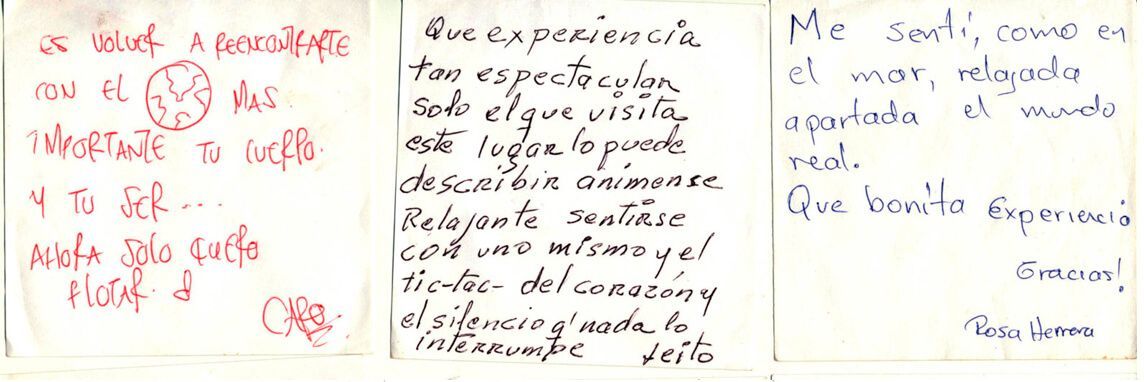 ES VOLVER A REENCONTRARTE
CON EL MAS
IMPORTANTE TU CUERPO.
Y TU SER...
AHORA SOLO QUIERO
FLOTAR.
CARO
Que experiencia
tan espectacular
solo el que visita
este lugar lo puede
describir animense
Relajante sentirse
con uno mismo y el
tic-tac- del corazón y
el silencio q' nada lo
interrumpe teito
Me sentí, como en
el mar, relajada
apartada el mundo
real.
Que bonita Experiencia
Gracias!
Rosa Herrera